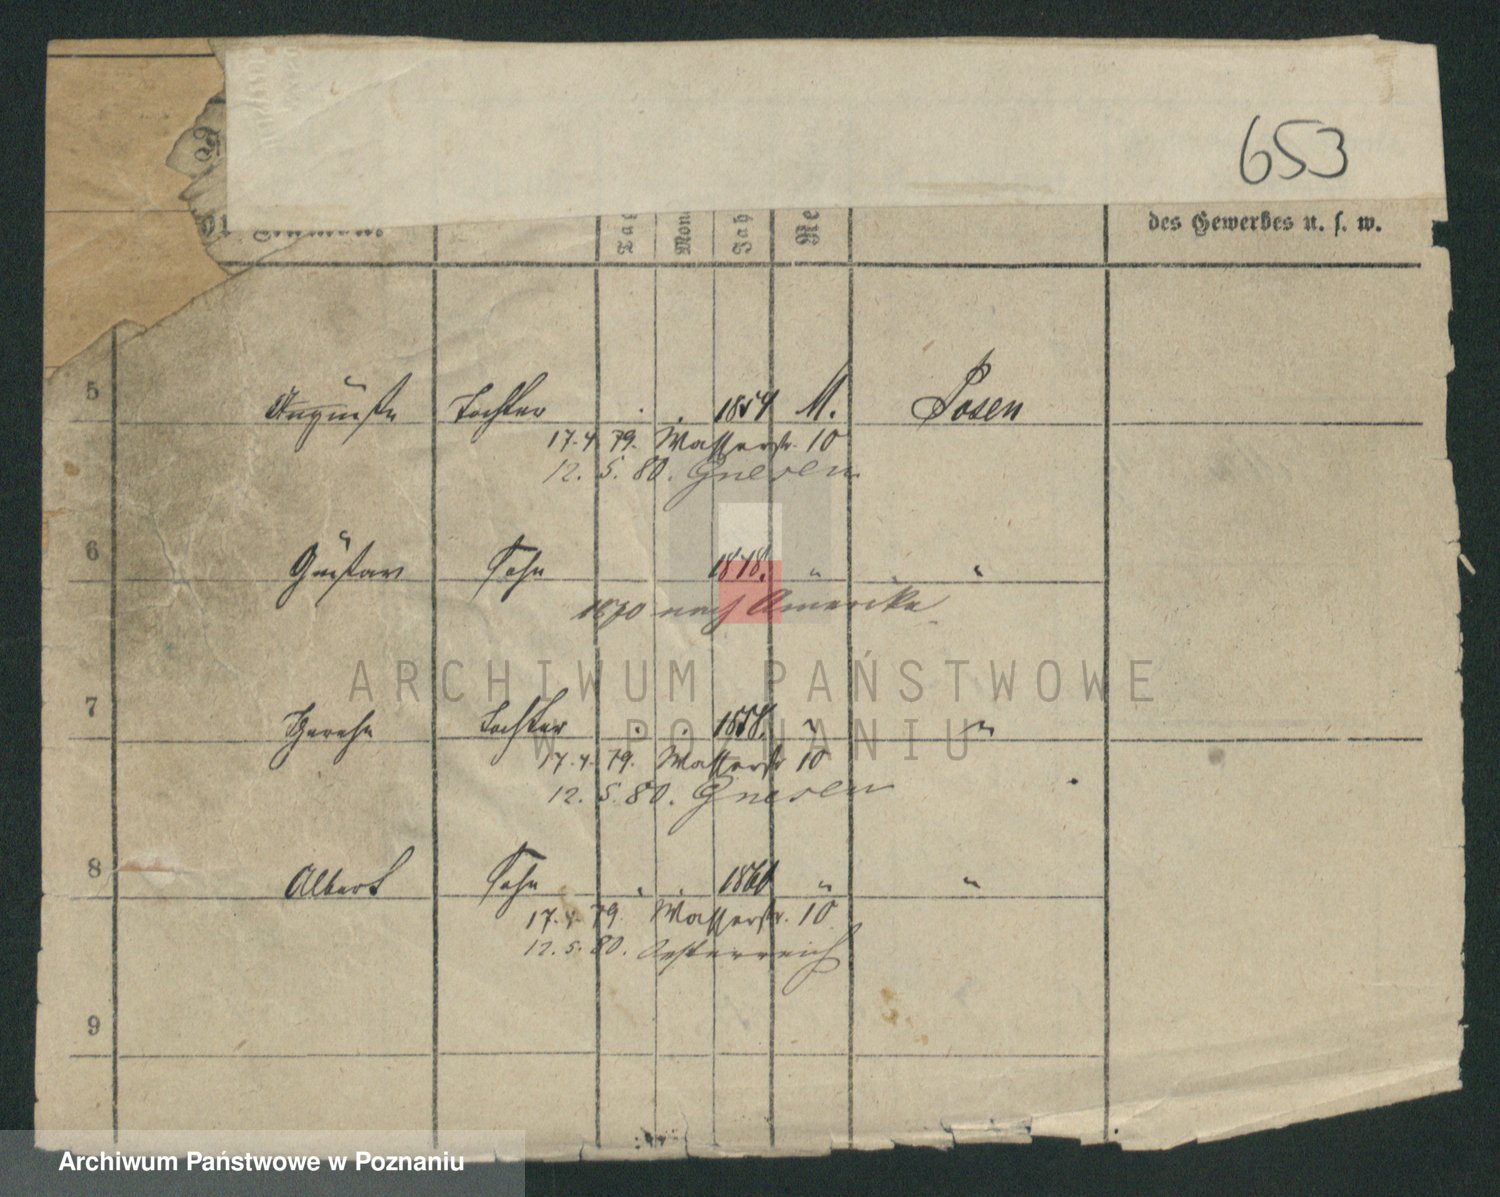 653
des Gewerbes u. s. w.
5 Auguste Tochter 1854 M. Posen
17. 4. 79. Wasserstr. 10
12. 5. 80. Gnesen
6 Gustav Sohn " "
1870 nach Amerika
7 Tochter 1858. " "
17. 4. 79. Wasserstr 10
12. 5. 80. Gnesen
8 Albert Sohn 1860 " "
17. 4. 79. Wasserstr. 10
12. 5. 80. Oesterreich
9
ARCHIWUM PAŃSTWOWE
W POZNANIU
Archiwum Państwowe w Poznaniu